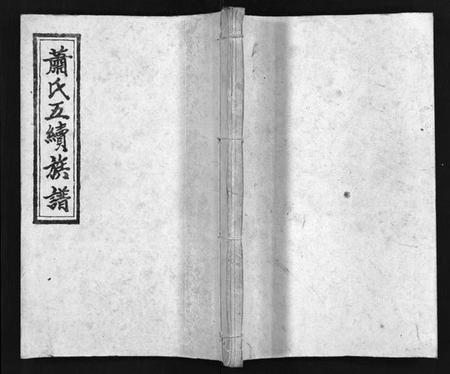 蕭氏五續族譜